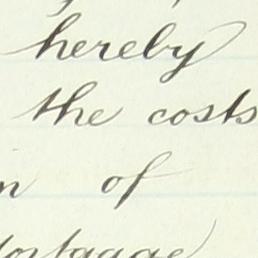 hereby
the costs
n of
Mortgage